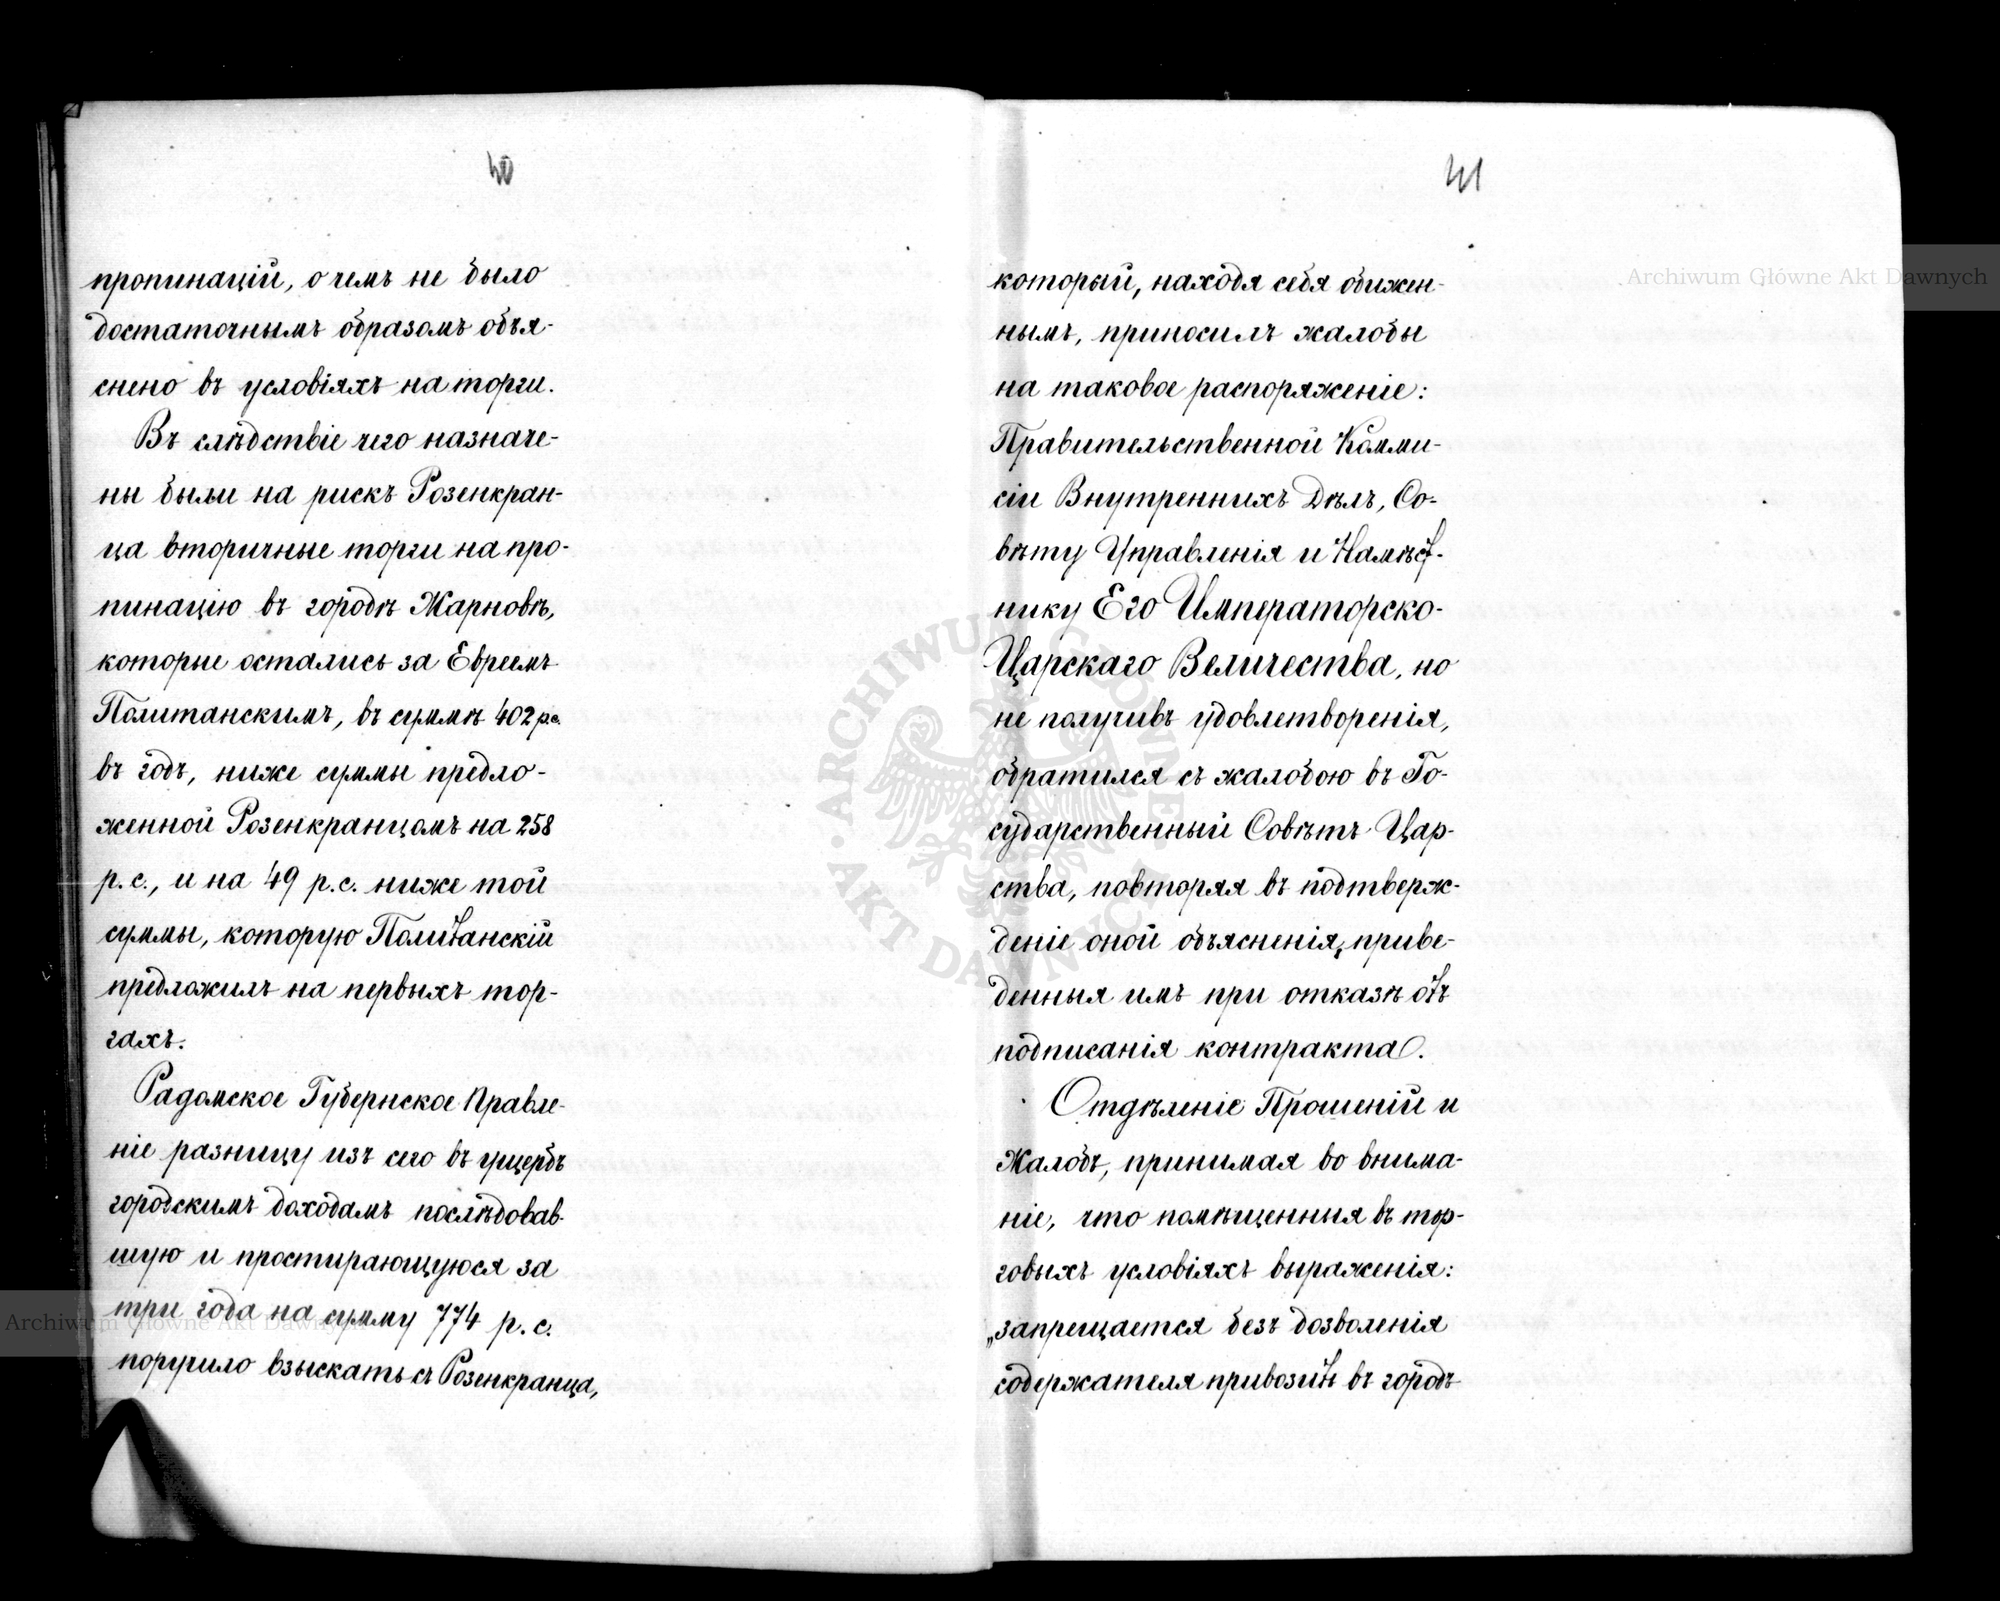 40
пропинацій, о чемъ не было
достаточнымъ образомъ объя-
снено въ условіяхъ на торги.
Въ слѣдствіе чего назначе-
ны были на рискъ Розенкран-
ца вторичные торги на про-
пинацію въ городѣ Жарновѣ,
которые остались за Евреемъ
Политанскимъ, въ суммѣ 402 р.с.
въ годъ, ниже суммы предло-
женной Розенкранцомъ на 258
р. с., и на 49 р. с. ниже той
суммы, которую Политанскій
предложилъ на первыхъ тор-
гахъ.
Радомское Губернское Правле-
ніе разницу изъ сего въ ущербъ
городскимъ доходамъ послѣдовав-
шую и простирающуюся за
три года на сумму 774 р. с.
поручило взыскать съ Розенкранца,
41
который, находя себя обижен-
нымъ, приносилъ жалобы
на таковое распоряженіе:
Правительственной Комми-
сіи Внутреннихъ Дѣлъ, Со-
вѣту Управленія и Намѣст-
нику Его Императорско-
Царскаго Величества, но
не получивъ удовлетворенія,
обратился съ жалобою въ Го-
сударственный Совѣтъ Цар-
ства, повторяя въ подтверж-
деніе оной объясненія, приве-
денныя имъ при отказѣ отъ
подписанія контракта.
Отдѣленіе Прошеній и
Жалобъ, принимая во внима-
ніе, что помѣщенныя въ тор-
говыхъ условіяхъ выраженія:
„запрещается безъ дозволенія
содержателя привозить въ городъ
Archiwum Główne Akt Dawnych
Archiwum Główne Akt Dawnych
ARCHIWUM GŁÓWNE AKT DAWNYCH